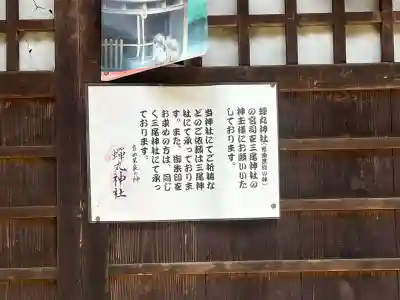 蟬丸神社(音曲芸能の神)
の宮司を三尾神社の
神主様にお願いいた
しております。
当神社にてご祈祷な
どのご依頼は三尾神
社にて承っておりま
す。また、御朱印を
お求めの方は、同じ
く三尾神社にて承っ
ております。
蟬丸神社